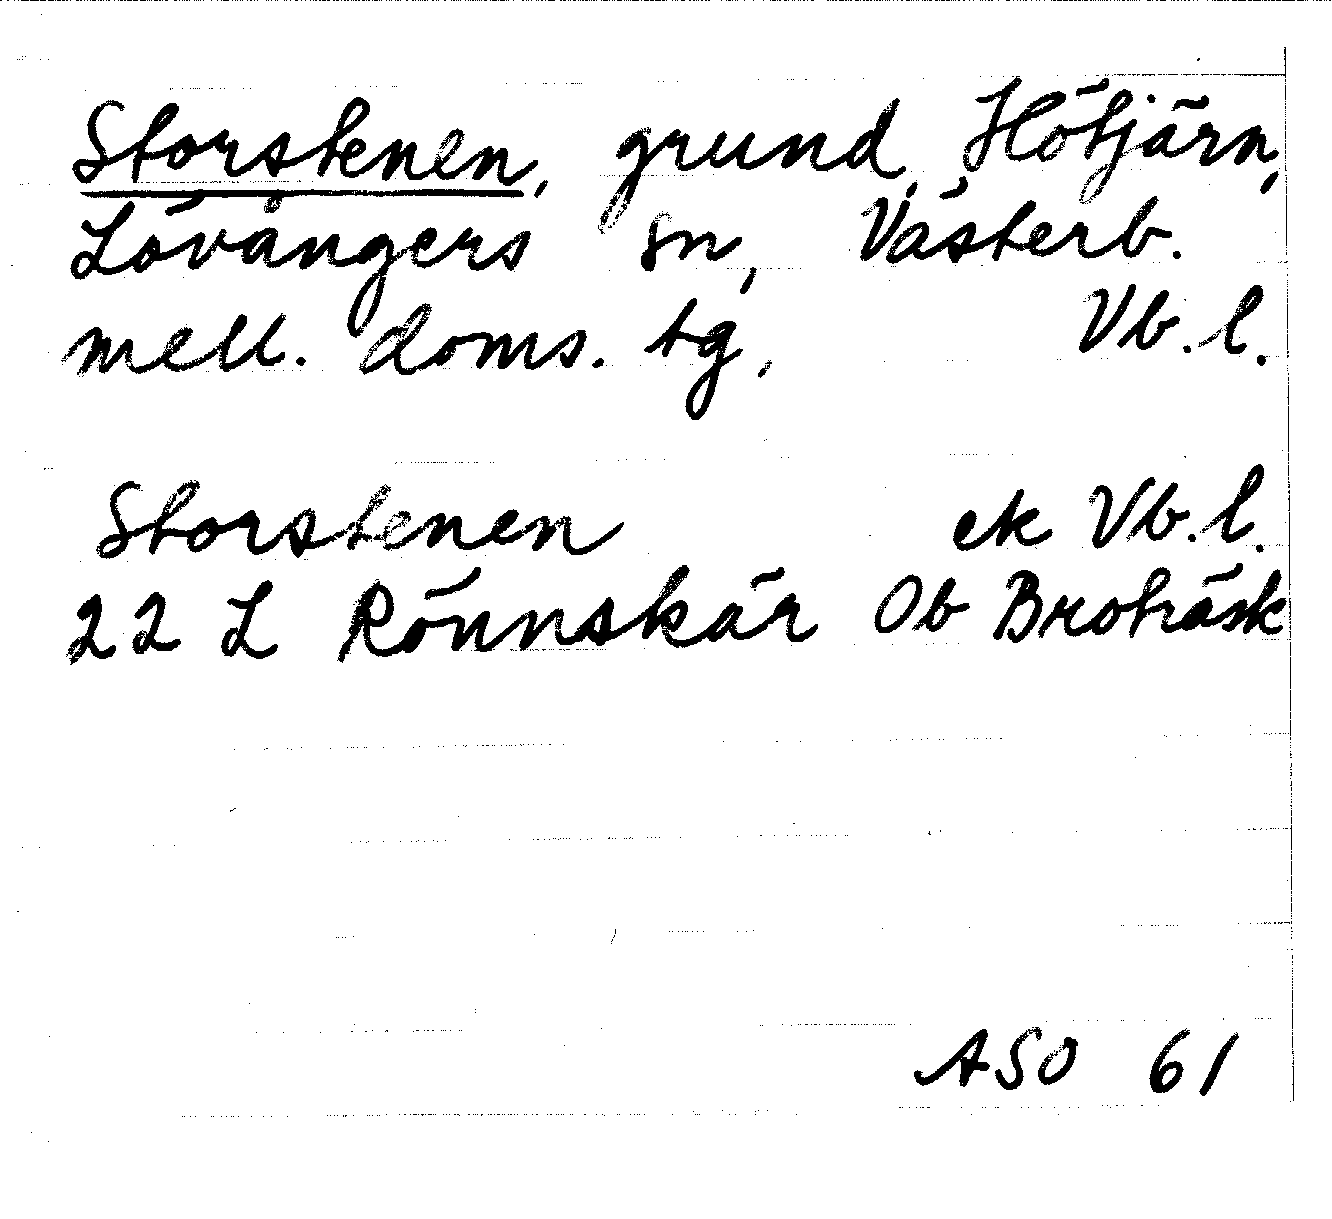 Storstenen, grund, Hötjärn,
Lövångers sn, Västerb.
mell. doms. tg, Vb. l.
Storstenen ek Vb. l.
22 L Rönnskär Ob Broträsk
ASO 61